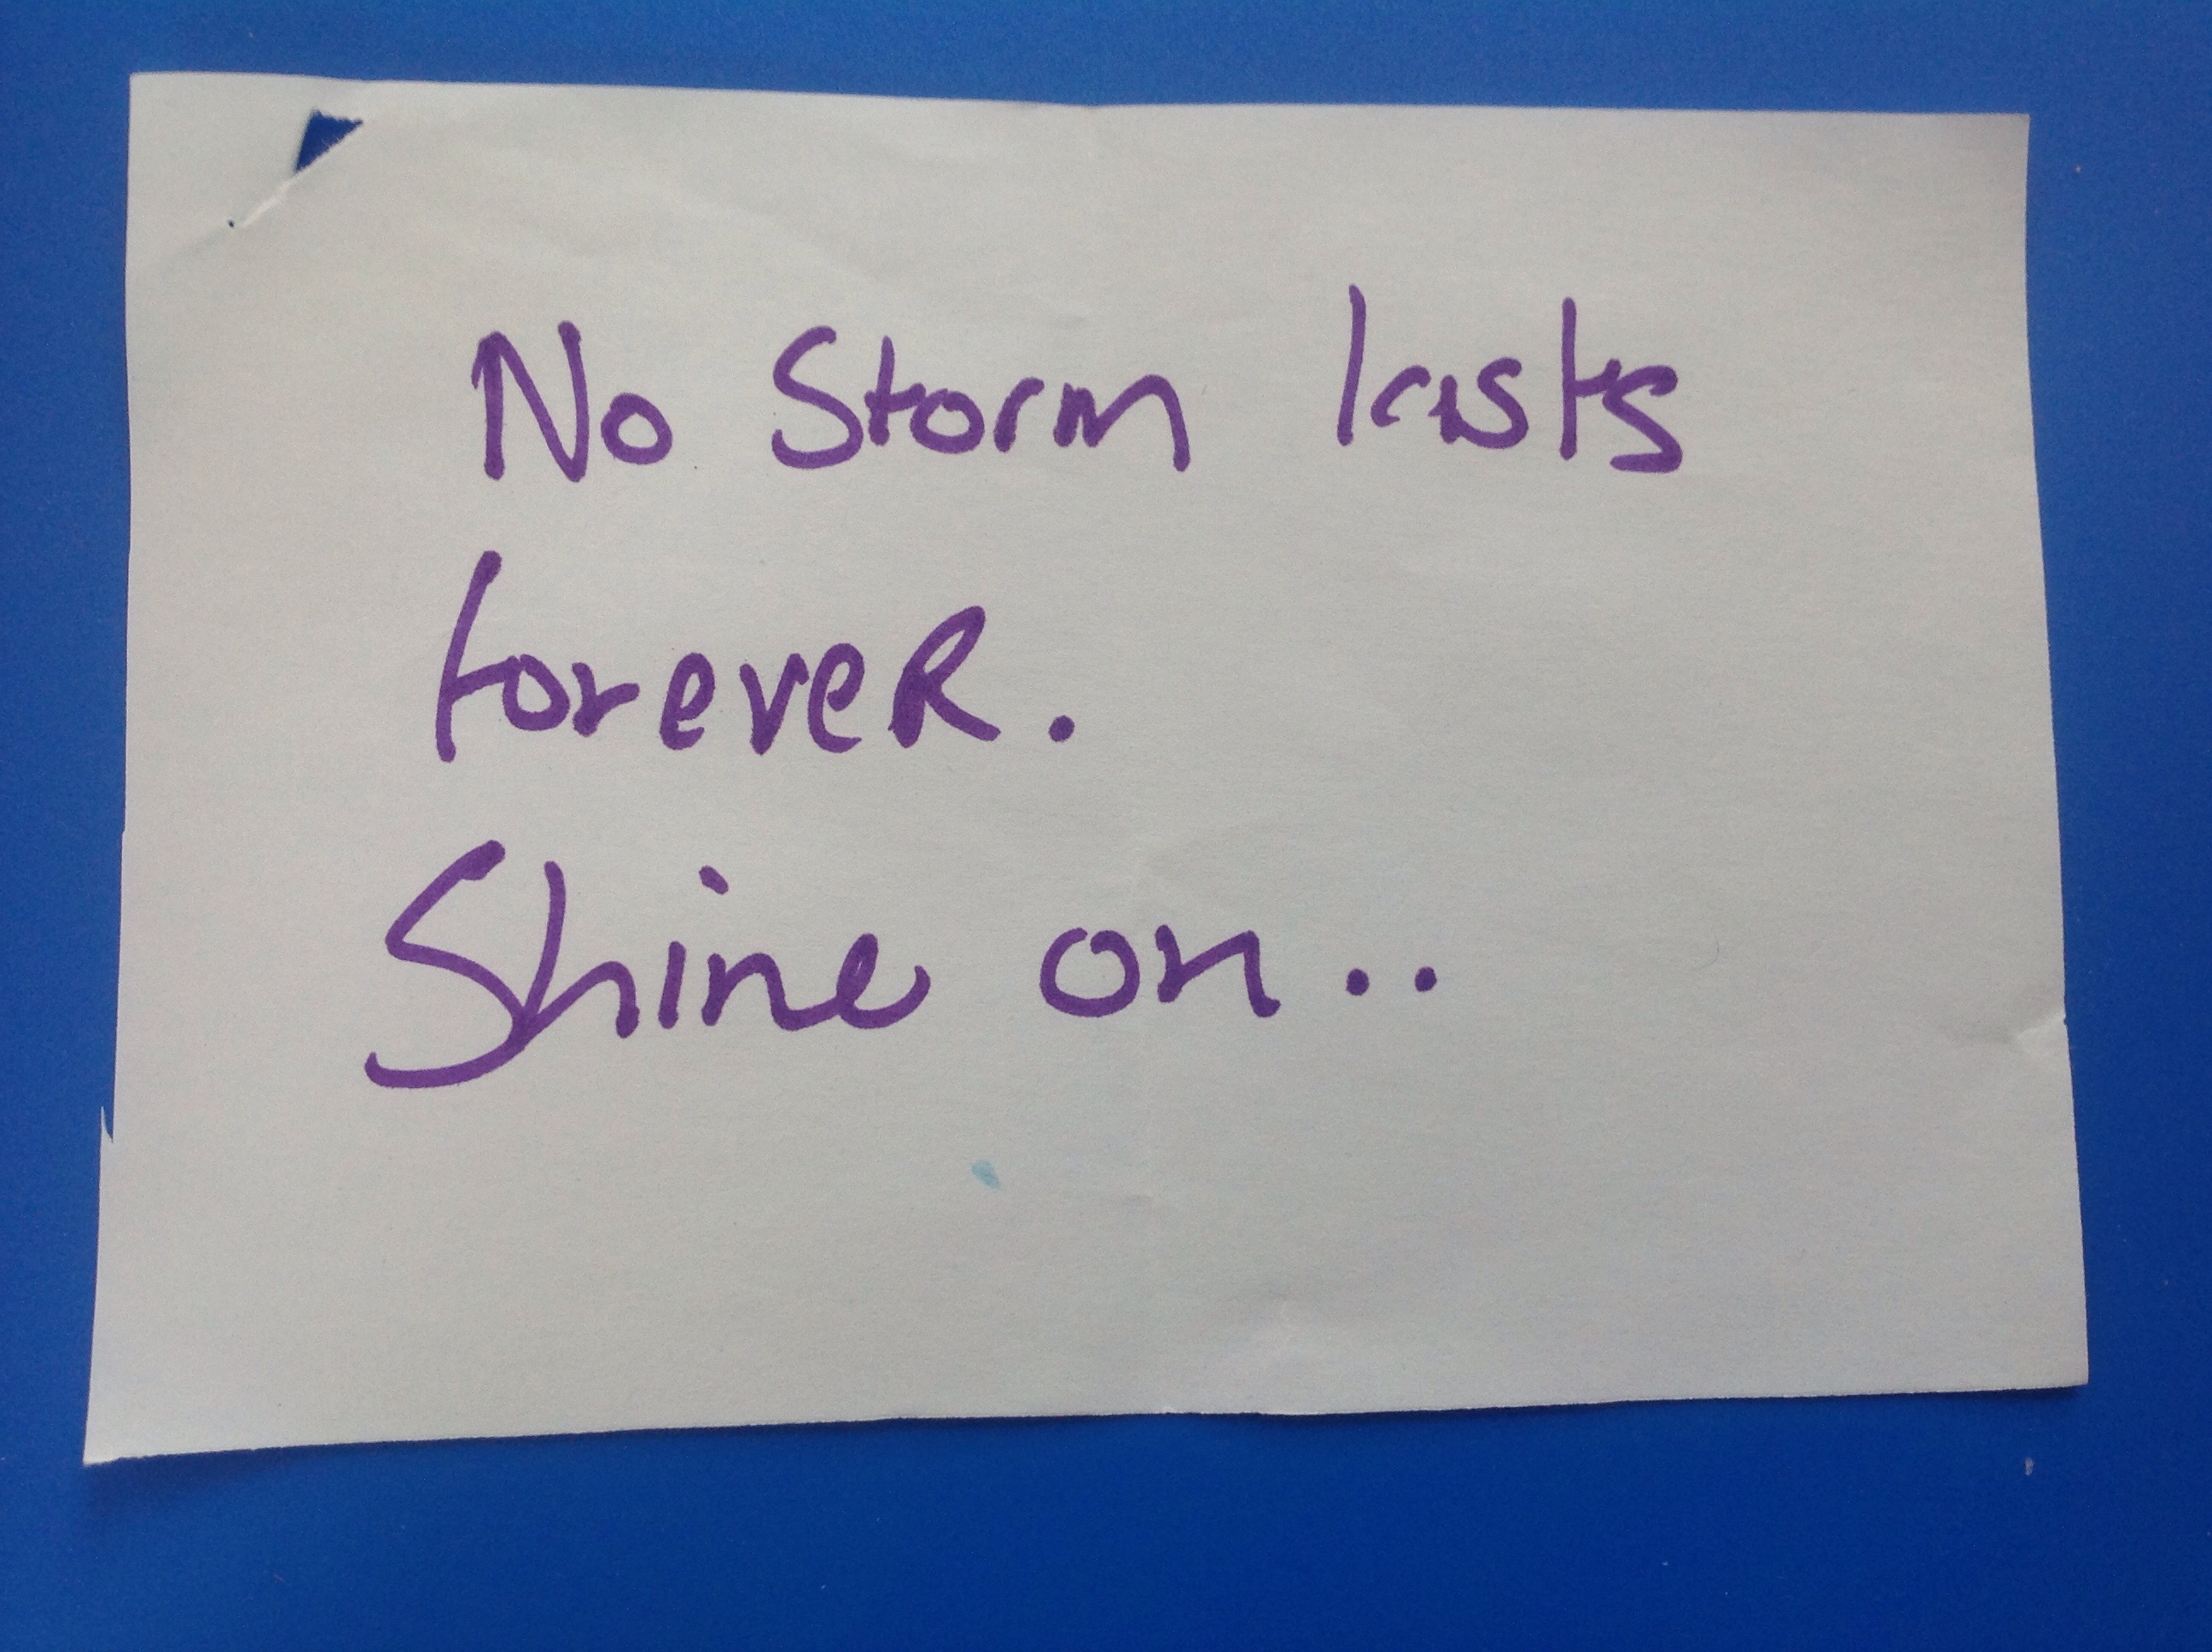 No Storm lasts
foreveR.
Shine on..